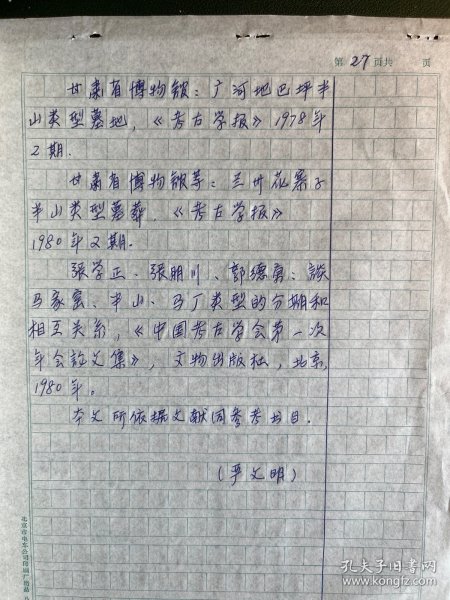 第 27 页共 页
甘肃省博物馆：广河地巴坪半
山类型墓地，《考古学报》1978年
2期．
甘肃省博物馆等：兰州花寨子
半山类型墓葬．《考古学报》
1980年2期．
张学正、张朋川、郭德勇：谈
马家窑、半山、马厂类型的分期和
相互关系，《中国考古学会第一次
年会论文集》，文物出版社，北京，
1980年。
本文所依据文献同参考书目．
（严文明）
北京市电车公司印刷厂出品
孔夫子旧书网
www.kongfz.com